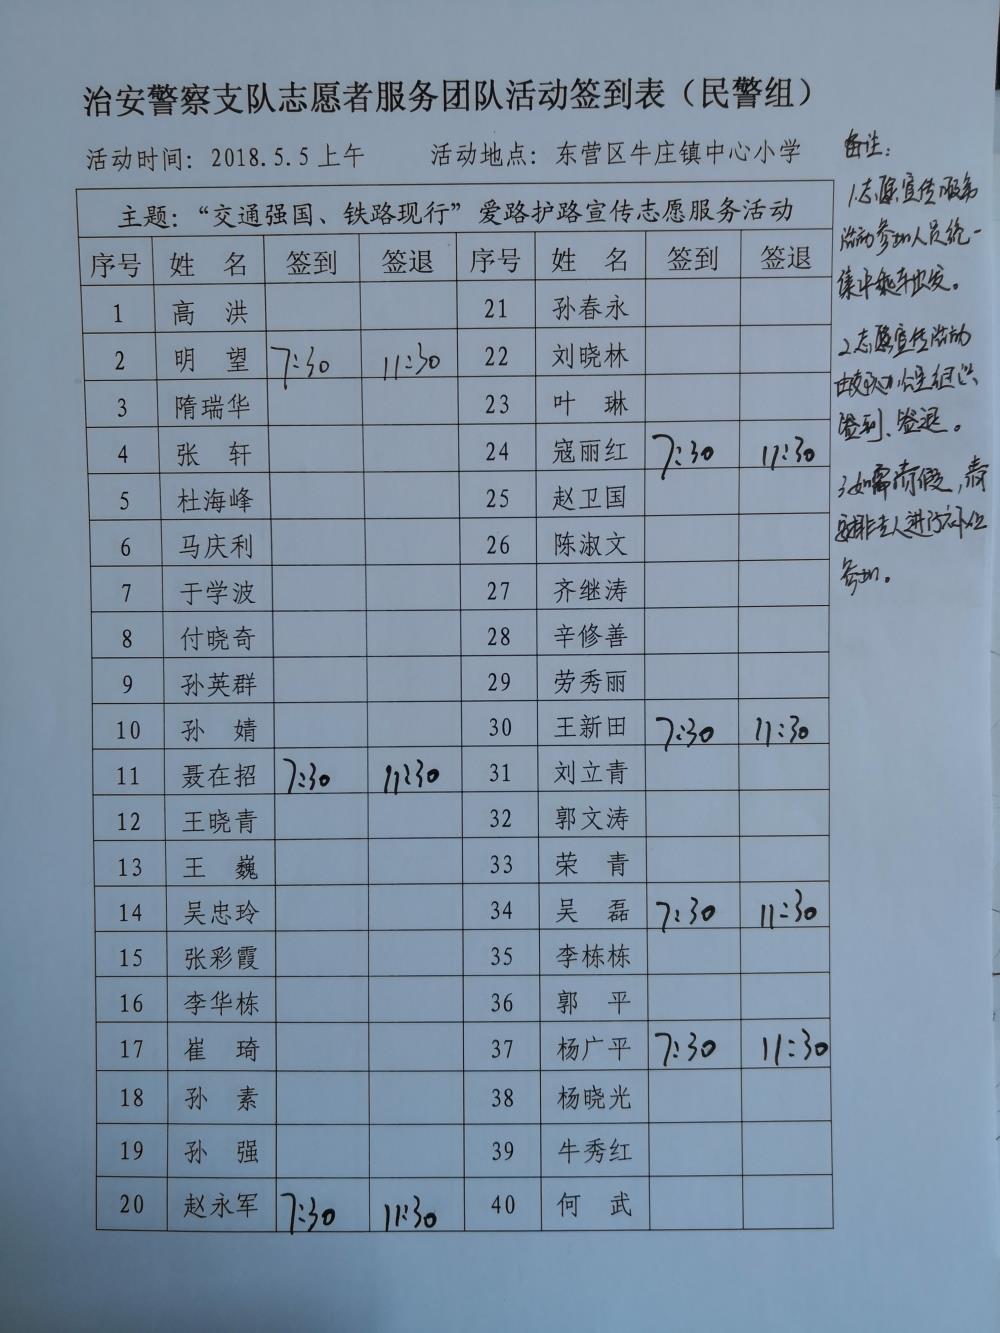 治安警察支队志愿者服务团队活动签到表（民警组）
活动时间：2018.5.5上午 活动地点：东营区牛庄镇中心小学
主题：“交通强国、铁路现行”爱路护路宣传志愿服务活动
序号 姓 名 签到 签退 序号 姓 名 签到 签退
1 高 洪 21 孙春永
2 明 望 7:30 11:30 22 刘晓林
3 隋瑞华 23 叶 琳
4 张 轩 24 寇丽红 7:30 11:30
5 杜海峰 25 赵卫国
6 马庆利 26 陈淑文
7 于学波 27 齐继涛
8 付晓奇 28 辛修善
9 孙英群 29 劳秀丽
10 孙 婧 30 王新田 7:30 11:30
11 聂在招 7:30 11:30 31 刘立青
12 王晓青 32 郭文涛
13 王 巍 33 荣 青
14 吴忠玲 34 吴 磊 7:30 11:30
15 张彩霞 35 李栋栋
16 李华栋 36 郭 平
17 崔 琦 37 杨广平 7:30 11:30
18 孙 素 38 杨晓光
19 孙 强 39 牛秀红
20 赵永军 7:30 11:30 40 何 武
备注：
1.志愿宣传服务
活动参加人员统一
集中乘车出发。
2.志愿宣传活动
签到、签退。
3.如需请假，请
安排专人进行补位
参加。